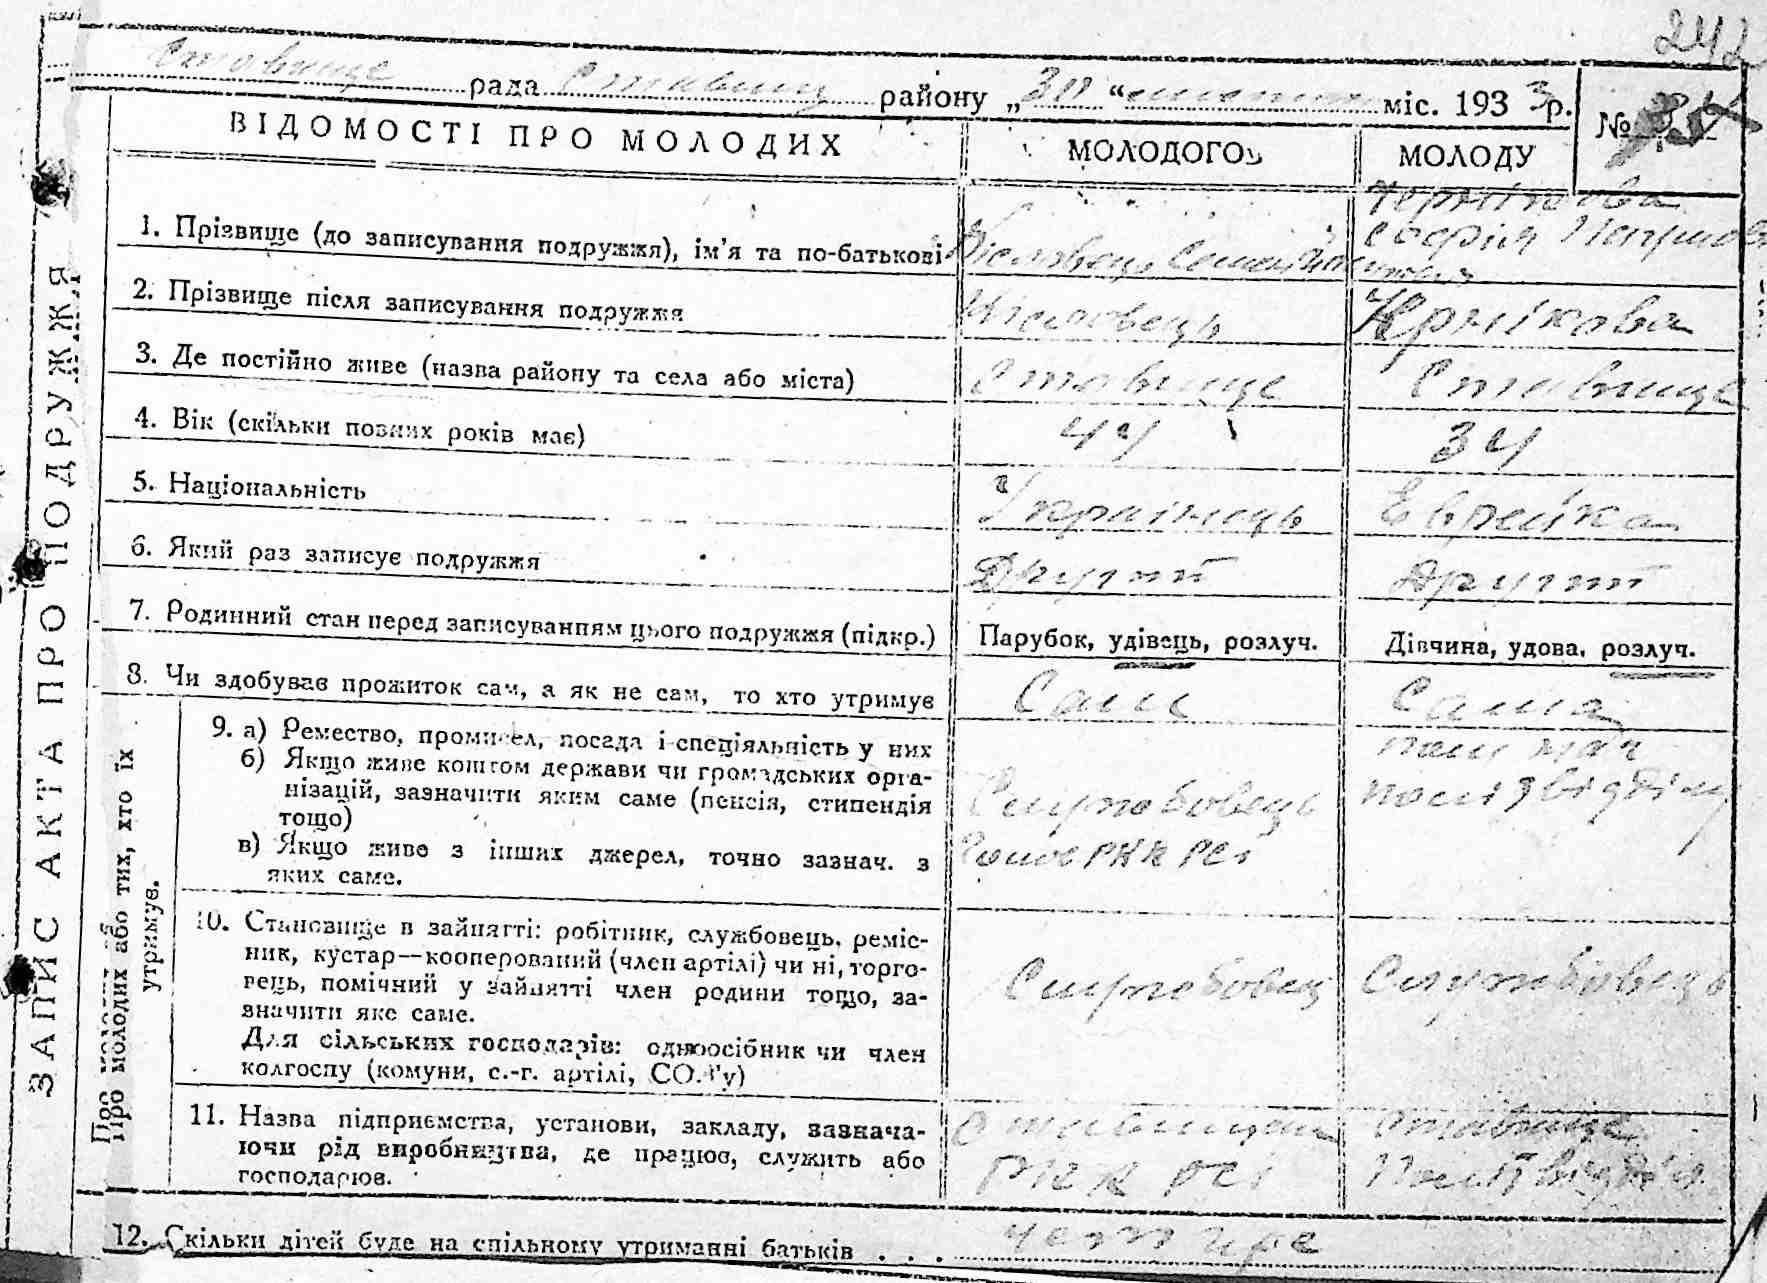 242
Ставище рада Ставищ району „30“ міс. 1933 р.
№
ВІДОМОСТІ ПРО МОЛОДИХ
МОЛОДОГО
МОЛОДУ
ЗАПИС АКТА ПРО ПОДРУЖЖЯ
1. Прізвище (до записування подружжя), ім'я та по-батькові
Чернікова
Софія
2. Прізвище після записування подружжя
Чернікова
3. Де постійно живе (назва району та села або міста)
Ставище
Ставище
4. Вік (скільки повних років має)
44
34
5. Національність
Українець
Еврейка
6. Який раз записує подружжя
Другий
Другий
7. Родинний стан перед записуванням цього подружжя (підкр.)
Парубок, удівець, розлуч.
Дівчина, удова, розлуч.
8. Чи здобував прожиток сам, а як не сам, то хто утримує
Сам
Сама
Про молодих або тих, хто їх
утримує.
9. а) Ремество, промисел, посада і спеціяльність у них
б) Якщо живе коштом держави чи громадських орга-
нізацій, зазначити яким саме (пенсія, стипендія
тощо)
в) Якщо живе з інших джерел, точно зазнач. з
яких саме.
Службовець
Голов РКК РСІ
політвідділу
10. Становище в зайнятті: робітник, службовець, реміс-
ник, кустар—кооперований (член артілі) чи ні, торго-
вець, помічний у зайнятті член родини тощо, за-
значити яке саме.
Для сільських господарів: одноосібник чи член
колгоспу (комуни, с.-г. артілі, СОЗ'у)
Службовец
Службовець
11. Назва підприємства, установи, закладу, зазнача-
ючи рід виробництва, де працює, служить або
господарює.
РКК РСІ
Ставище
Політвідділ
12. Скільки дітей буде на спільному утриманні батьків . . .
четире